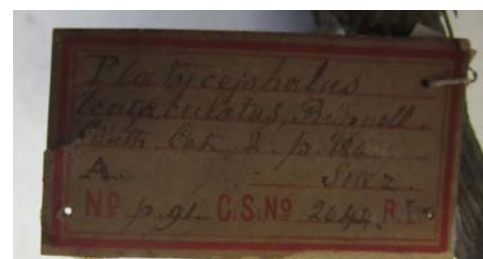 Platycephalus
tentaculatus, Rüppell.
Günth. Cat. 2. p.
A. Suez.
Nº p.91. C.S.Nº 2044. R.E.